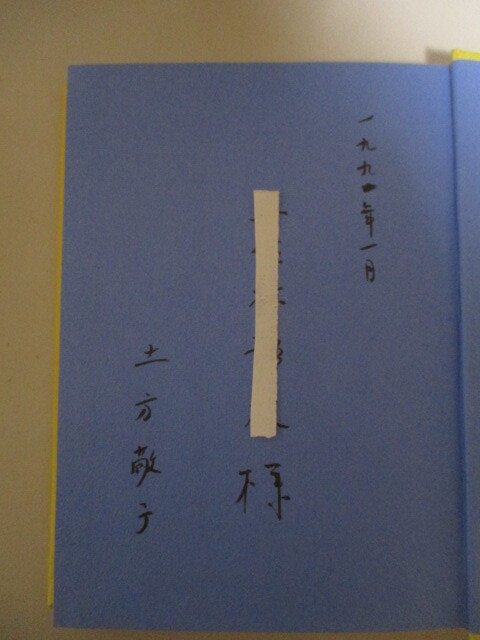 一九九四年一月
様
土方敬子